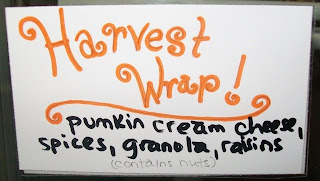 Harvest
Wrap!
pumkin cream cheese,
spices, granola, raisins
(contains nuts)